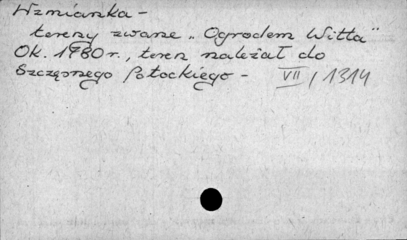 Wzmianka -
tereny zwane „Ogrodem Witta"
Ok. 1780 r., teren należał do
Szczęsnego Potockiego - VII / 1314